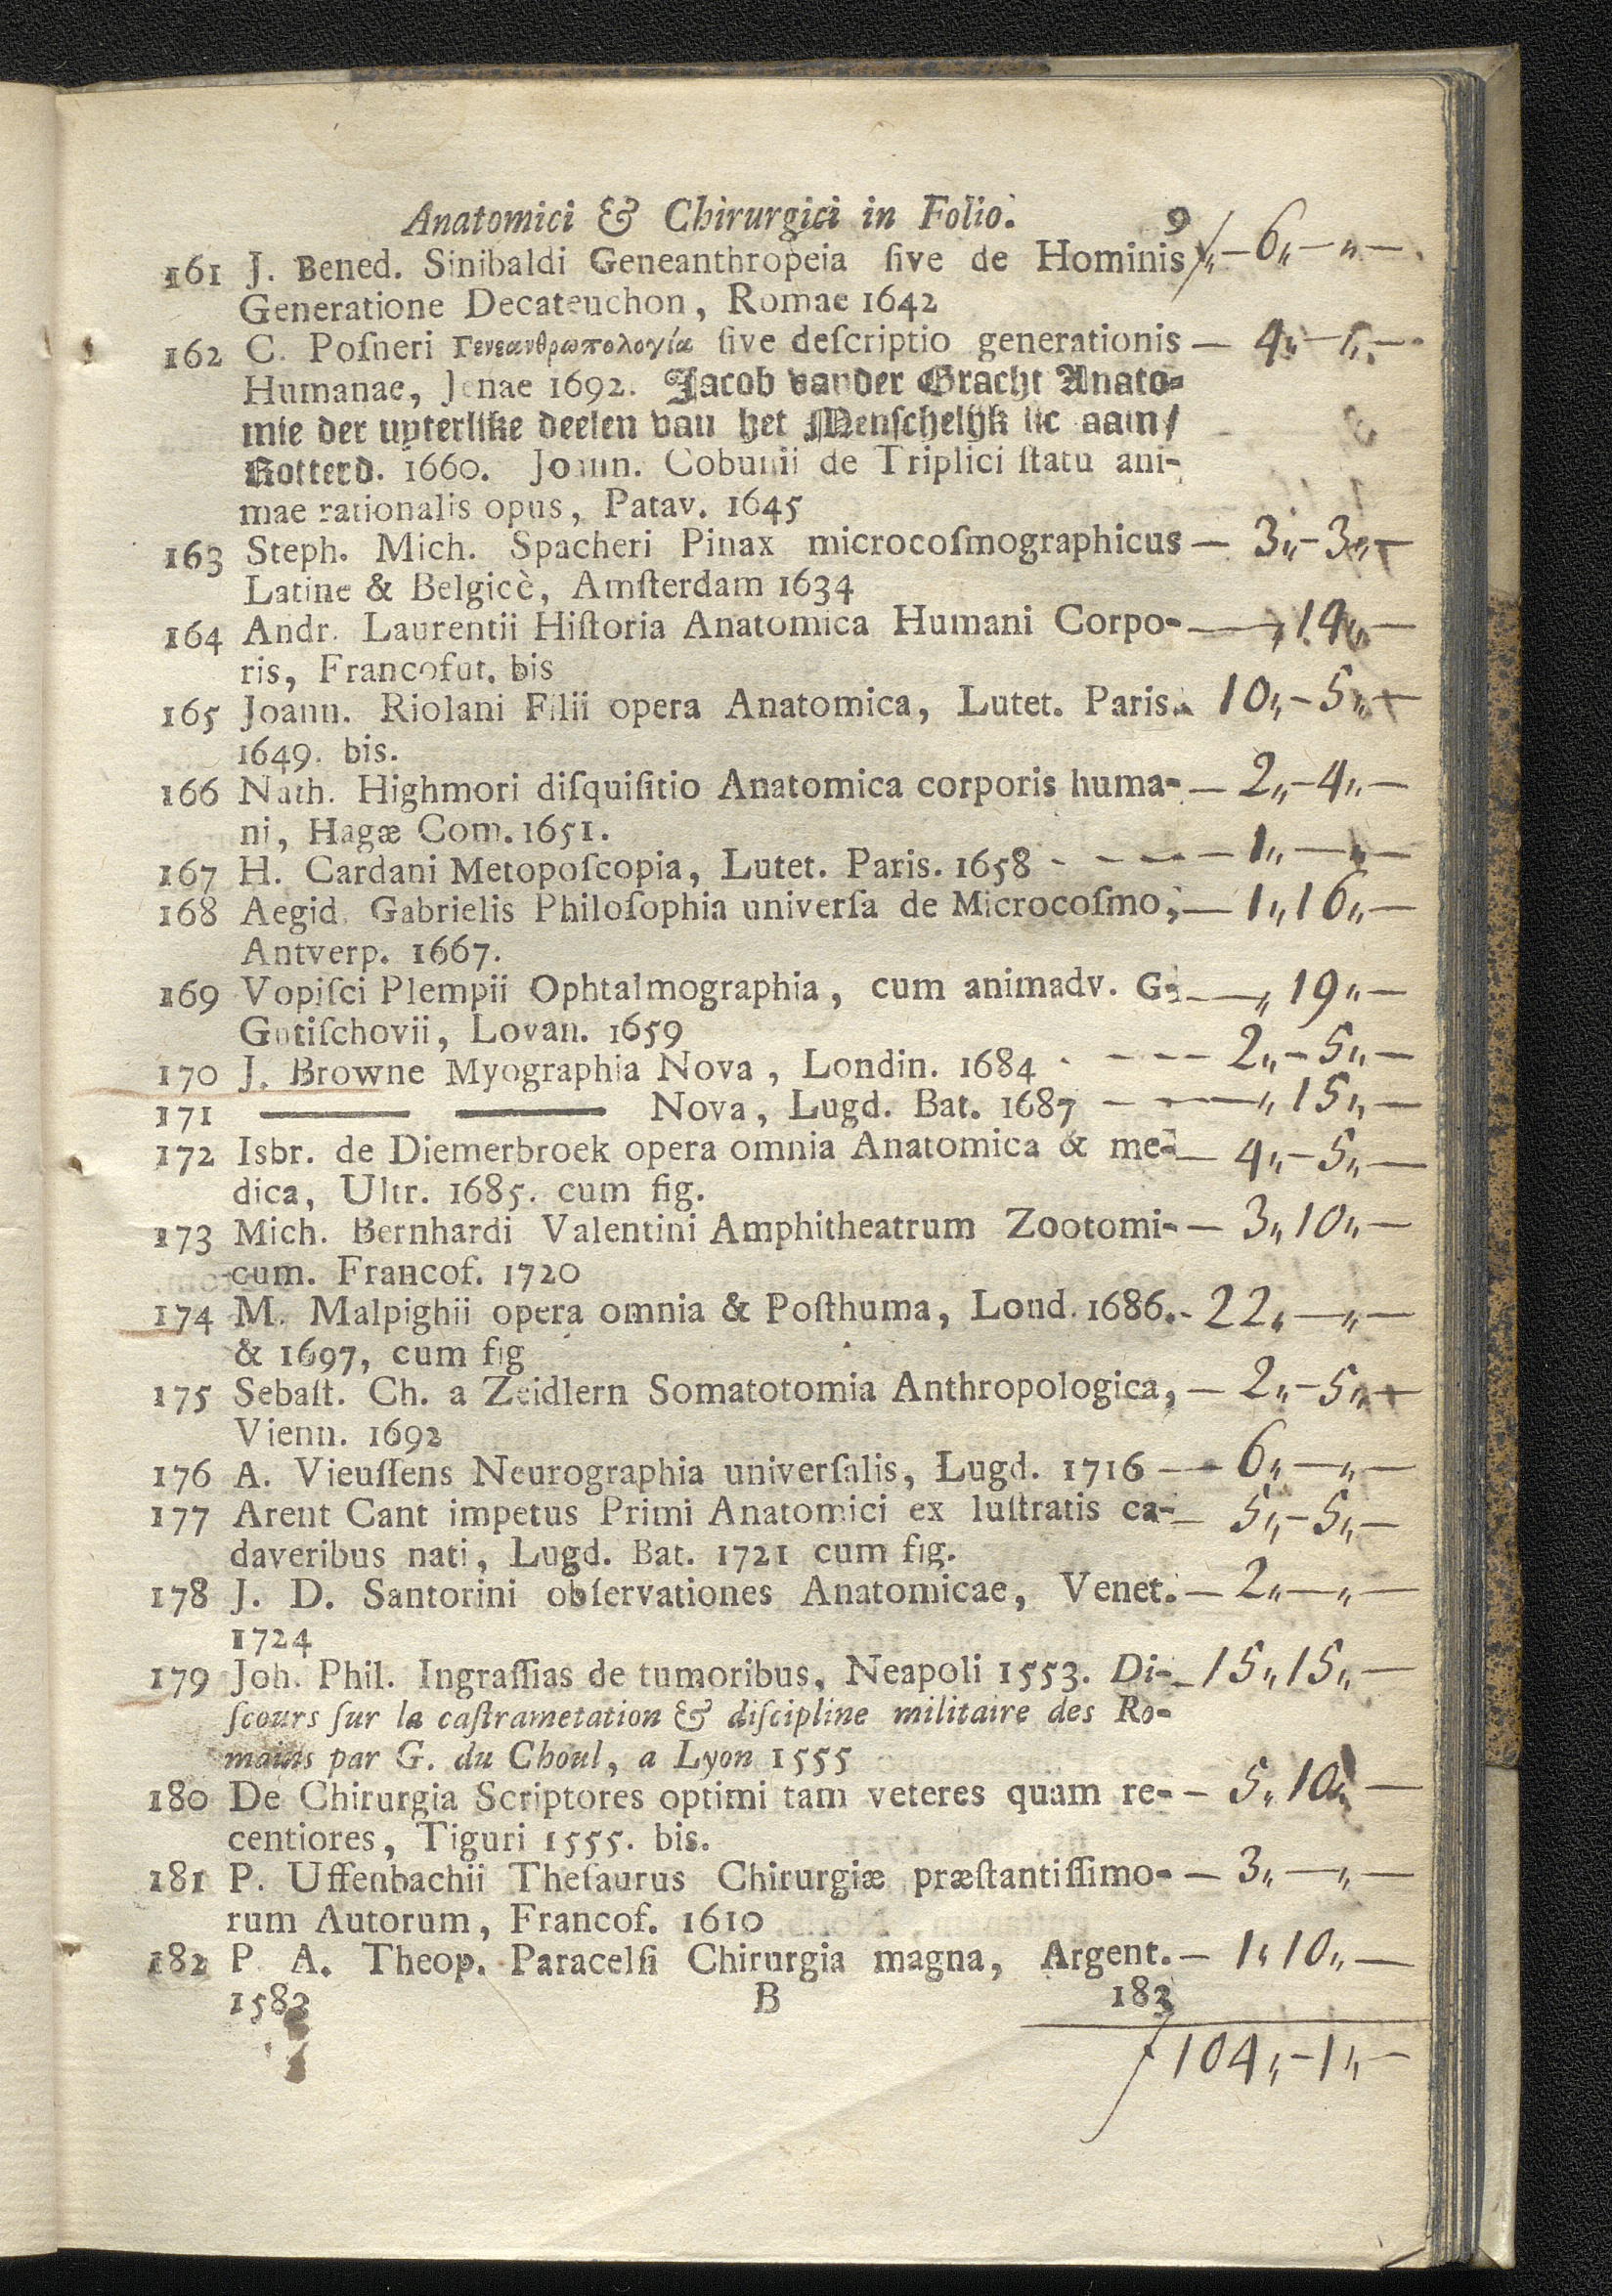 Anatomici & Chirurgici in Folio. 9
161 J. Bened. Sinibaldi Geneanthropeia ſive de Hominis — 6„ — „ —
Generatione Decateuchon, Romae 1642
162 C. Poſneri Γενεανθρωπολογία ſive deſcriptio generationis — 4„ —
Humanae, Jenae 1692. Jacob vander Gracht Anato-
mie der uyterlike deelen van het Menſchelijk lic aam/
Rotterd. 1660. Joann. Cobunii de Triplici ſtatu ani-
mae rationalis opus, Patav. 1645
163 Steph. Mich. Spacheri Pinax microcoſmographicus — 3„ - 3„ —
Latine & Belgicè, Amſterdam 1634
164 Andr. Laurentii Hiſtoria Anatomica Humani Corpo- — „ 14„ —
ris, Francofut. bis
165 Joann. Riolani Filii opera Anatomica, Lutet. Paris. 10„ - 5„ —
1649. bis.
166 Nath. Highmori diſquiſitio Anatomica corporis huma- — 2„ - 4„ —
ni, Hagæ Com. 1651.
167 H. Cardani Metopoſcopia, Lutet. Paris. 1658 - - - — 1„ — „ —
168 Aegid. Gabrielis Philoſophia univerſa de Microcoſmo, — 1„ 16„ —
Antverp. 1667.
169 Vopiſci Plempii Ophtalmographia, cum animadv. G. — „ 19„ —
Gutiſchovii, Lovan. 1659
170 J. Browne Myographia Nova, Londin. 1684 - - - - 2„ - 5„ —
171 —— —— Nova, Lugd. Bat. 1687 — — „ 15„ —
172 Isbr. de Diemerbroek opera omnia Anatomica & me- — 4„ - 5„ —
dica, Ultr. 1685. cum fig.
173 Mich. Bernhardi Valentini Amphitheatrum Zootomi- — 3„ 10„ —
cum. Francof. 1720
174 M. Malpighii opera omnia & Poſthuma, Lond. 1686. - 22„ — „ —
& 1697, cum fig
175 Sebaſt. Ch. a Zeidlern Somatotomia Anthropologica, — 2„ - 5„ —
Vienn. 1692
176 A. Vieuſſens Neurographia univerſalis, Lugd. 1716 — 6„ — „ —
177 Arent Cant impetus Primi Anatomici ex luſtratis ca- — 5„ - 5„ —
daveribus nati, Lugd. Bat. 1721 cum fig.
178 J. D. Santorini obſervationes Anatomicae, Venet. — 2„ — „ —
1724
179 Joh. Phil. Ingraſſias de tumoribus, Neapoli 1553. Di- — 15„ 15„ —
ſcours ſur la caſtrametation & diſcipline militaire des Ro-
mains par G. du Choul, a Lyon 1555
180 De Chirurgia Scriptores optimi tam veteres quam re- — 5„ 10„ —
centiores, Tiguri 1555. bis.
181 P. Uffenbachii Theſaurus Chirurgiæ præſtantiſſimo- — 3„ — „ —
rum Autorum, Francof. 1610
182 P. A. Theop. Paracelſi Chirurgia magna, Argent. — 1„ 10„ —
1583 B 183
ƒ 104„ - 1„ —